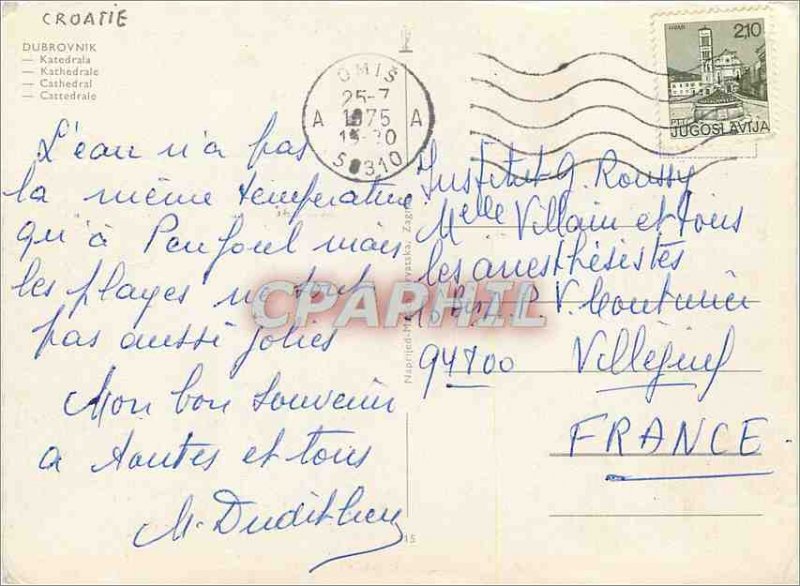 CROATIE
DUBROVNIK
— Katedrala
— Kathedrale
— Cathedral
— Cattedrale
OMIŠ
25-7
A 1975 A
58310
2,10
JUGOSLAVIJA
L'eau n'a pas
la même température
qu'à Penfoul mais
les plages ne sont
pas aussi jolies
Mon bon souvenir
a toutes et tous
Institut G. Roussy
Melle Villain et tous
les anesthésistes
16 bis P. V. Couturier
94800 Villejuif
FRANCE.
CPAPHIL
15